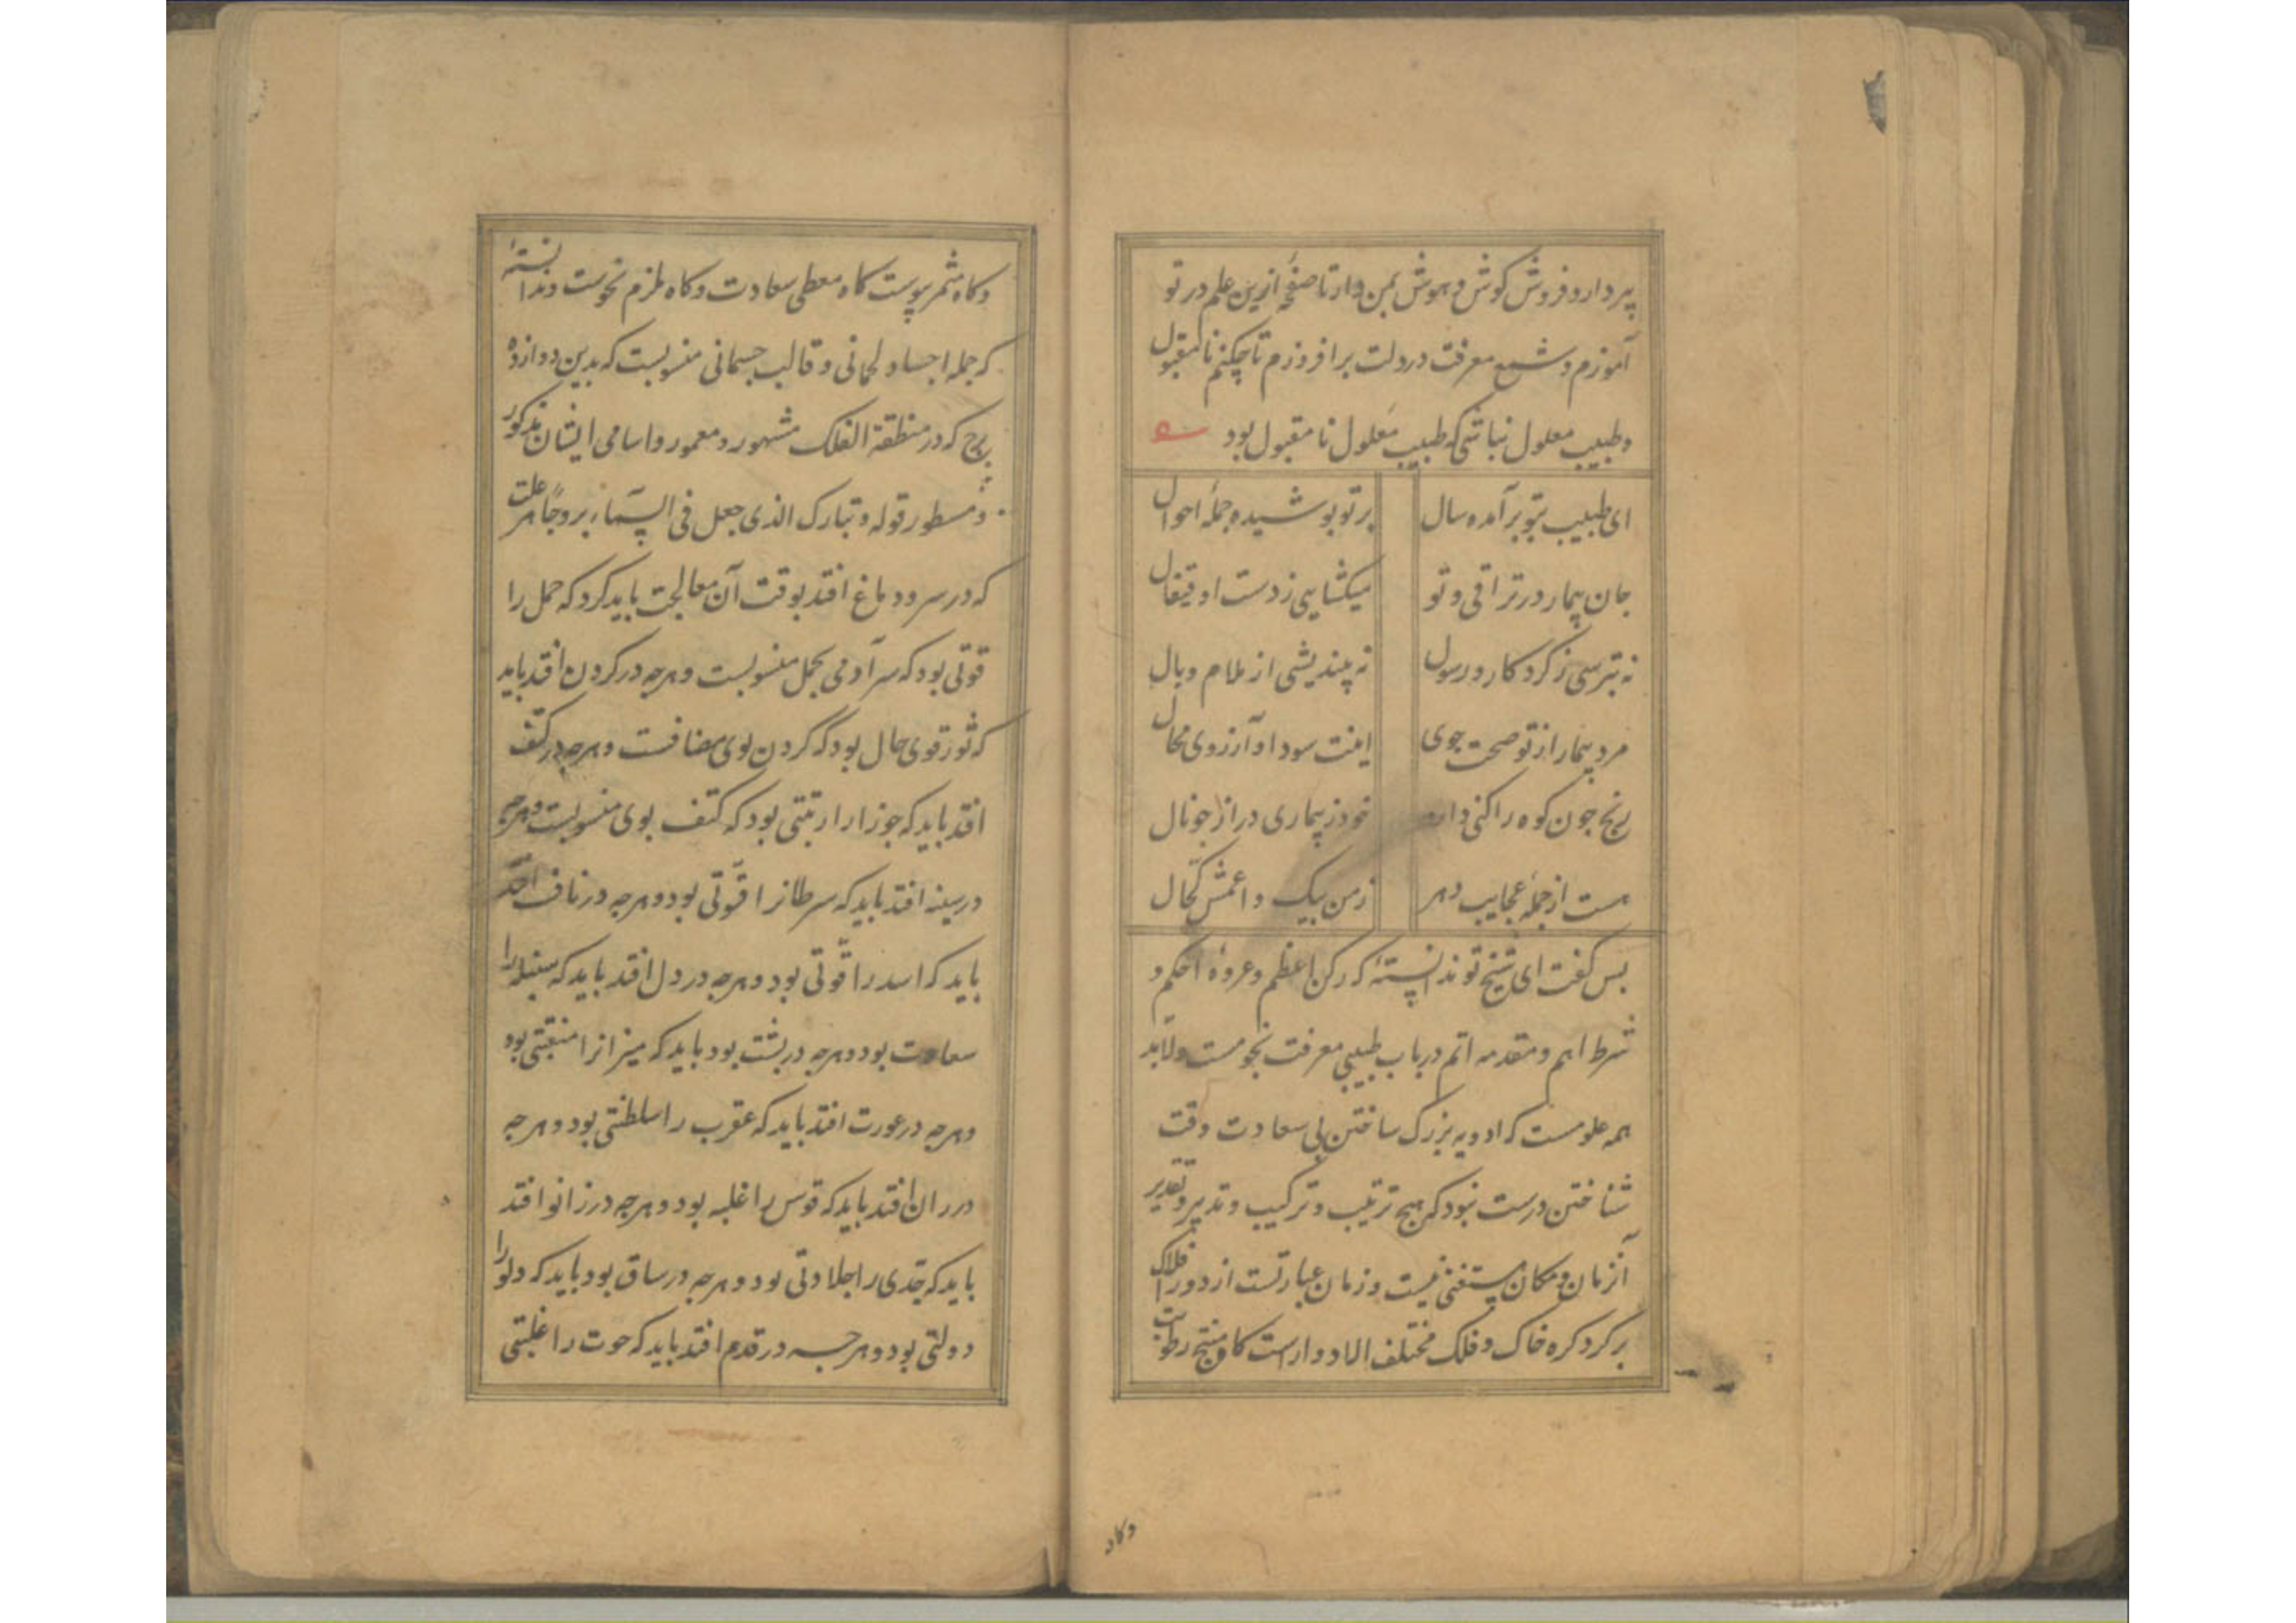 پیر دارو فروش کوش و هوش بمن دار تا صفحهٔ ازین علم در تو
آموزم و شمع معرفت در دلت برافروزم تا چکنم نامقبول
و طبیب معلول نباشی که طبیب معلول نامقبول بود
ای طبیب بتو برآمده سال
بر تو پوشیده جملهٔ احوال
جان بیمار در تراقی و تو
میکشایی ز دست او قیفال
نه بترسی ز کردکار و رسول
نه بیندیشی از ظلام و بال
مرد بیمار از تو صحت جوی
اینت سودا و آرزوی محال
رنج جون کوه را کنی دارو
خود ز بیماری دراز جو نال
هست از جملهٔ عجایب دهر
زمن پیک و اعمش کحال
بس کفت ای شیخ تو ندانستهٔ که رکن اعظم و عروهٔ احکم و
شرط اهم و مقدمه اتم در باب طبیبی معرفت نجومست ولابد
همه علومست که ادویه بزرک ساختن بی سعادت وقت
شناختن درست نبود که هیج ترتیب و ترکیب و تدبیر و تقدیر
از زمان و مکان مستغنی نیست و زمان عبارتست از دور افلاک
بر کرد کره خاک و فلک مختلف الادوار است کاه منتج رطوبت
وکاه
وکاه مثمر یبوست کاه معطی سعادت وکاه ملزم نحوست و ندانستهٔ
که جمله اجساد لحمانی و قالب جسمانی منسوبست که بدین دوازده
برج که در منطقة الفلک مشهور و معمور و اسامی ایشان مذکور
و مسطور قوله و تبارک الذی جعل فی السماء بروجاً هر علت
که در سر و دماغ افتد بوقت آن معالجت باید کرد که حمل را
قوتی بود که سر آدمی بحمل منسوبست و هرجه در کردن افتد باید
که ثور قوی حال بود که کردن بوی مضافست و هرجه در کتف
افتد باید که جوزا را رتبتی بود که کتف بوی منسوبست و هرجه
در سینه افتد باید که سرطانرا قوّتی بود و هرجه در ناف افتد
باید که اسد را قوّتی بود و هرجه در دل افتد باید که سنبله را
سعادت بود و هرجه در بشت بود باید که میزانرا منقبتی بود
و هرجه در عورت افتد باید که عقرب را سلطنتی بود و هرجه
در ران افتد باید که قوس را غلبه بود و هرجه در زانو افتد
باید که جدی را جلادتی بود و هرجه در ساق بود باید که دلو را
دولتی بود و هرجه در قدم افتد باید که حوت را غلبتی